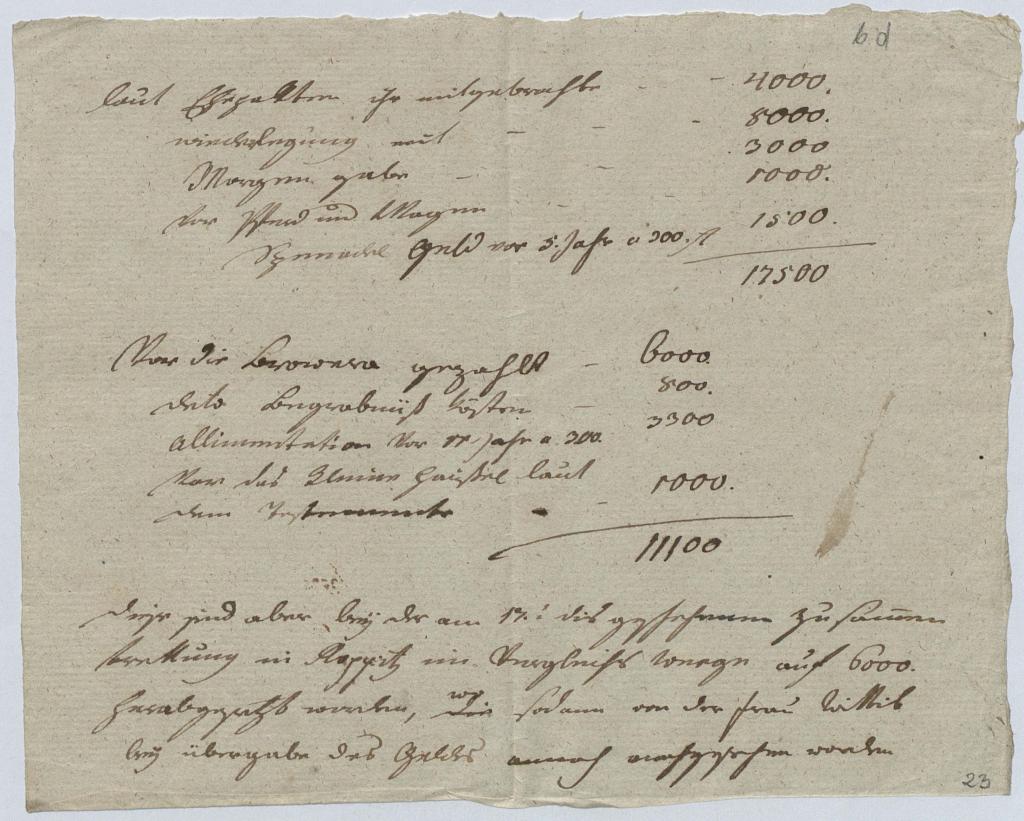 6 d
laut Ehepakten ihr mitgebrachte - - 4000.
wiederlegung mit - - - 8000.
Morgen gabe - - 3000
vor Pferd und Wagen - 1000.
Spennadel Geld vor 5. Jahr a 300. fl 1500.
17500
Vor die gezahlt - 6000.
deto Begräbniß kösten - 800.
Allimentation vor 11 Jahr a 300. 3300
Vor das kleine Haussel laut
dem Testamente - 1000.
11100
diese sind aber bey der am 17.t dis geschehenen zusam̄en
trettung in im Vergleichs weege auf 6000.
herabgesetzt worden, sodann von der Frau Wittib
bey übergabe des Geldes annoch nachgesehen worden
23